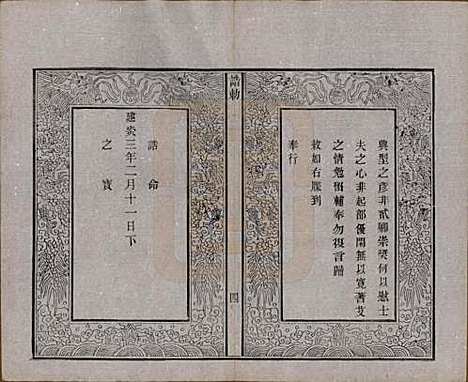 典型之彥非貳卿崇獎何以慰士
夫之心非起部優閒無以寬耆艾
之情勉留輔奉勿復言歸
敕如右牒到
奉行
誥勅
四
誥命
建炎三年二月十一日下
之寶